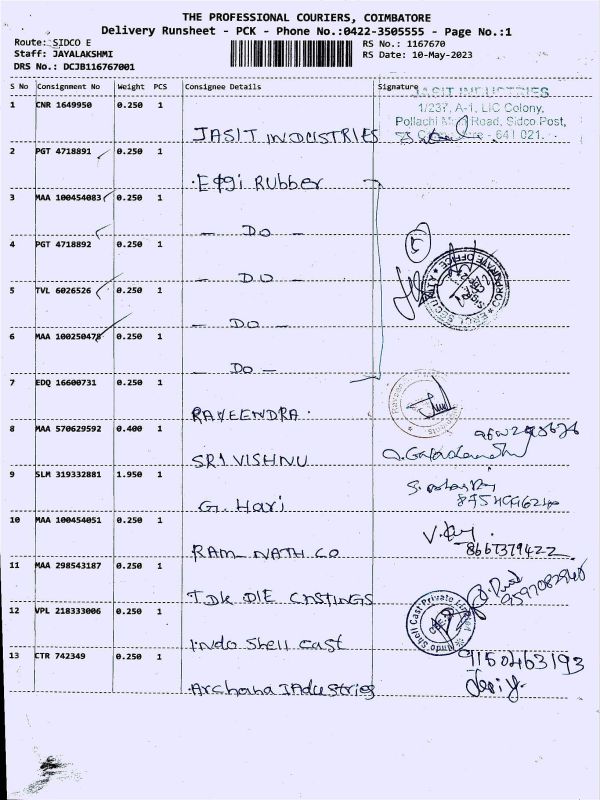 THE PROFESSIONAL COURIERS, COIMBATORE
Delivery Runsheet - PCK - Phone No.:0422-3505555 - Page No.:1
Route: SIDCO E
RS No.: 1167670
Staff: JAYALAKSHMI
RS Date: 10-May-2023
DRS No.: DCJB116767001
S No Consignment No Weight PCS Consignee Details Signature
JASIT INDUSTRIES
1/237, A-1, LIC Colony,
Pollachi Main Road, Sidco Post,
641 021.
1 CNR 1649950 0.250 1
JASIT INDUSTRIES
2 PGT 4718891 0.250 1
Effgi Rubber
3 MAA 100454083 0.250 1
- Do -
4 PGT 4718892 0.250 1
- Do -
5
SECURITY CORPORATE OFFICE
5 TVL 6026526 0.250 1
- Do -
6 MAA 100250478 0.250 1
- Do -
7 EDQ 16600731 0.250 1
RAVEENDRA.
8 MAA 570629592 0.400 1
SRI VISHNU
9 SLM 319332881 1.950 1
G. Hari
10 MAA 100454051 0.250 1
8667379422
RAM NATH CO
11 MAA 298543187 0.250 1
TDK DIE CASTINGS
12 VPL 218333006 0.250 1
Indo Shell Cast Private Limited
Indo Shell Cast
13 CTR 742349 0.250 1
9150463193
Archana INdustries